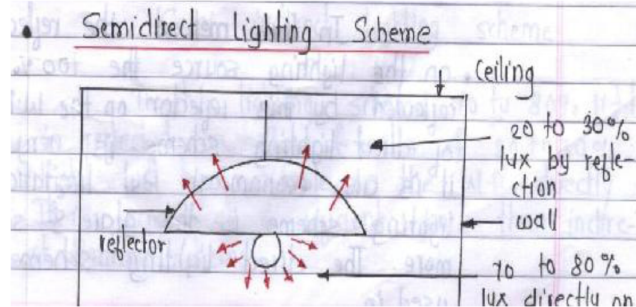 • Semidirect Lighting Scheme
Ceiling
20 to 30%
lux by refle-
ction
wall
reflector
70 to 80%
lux directly on